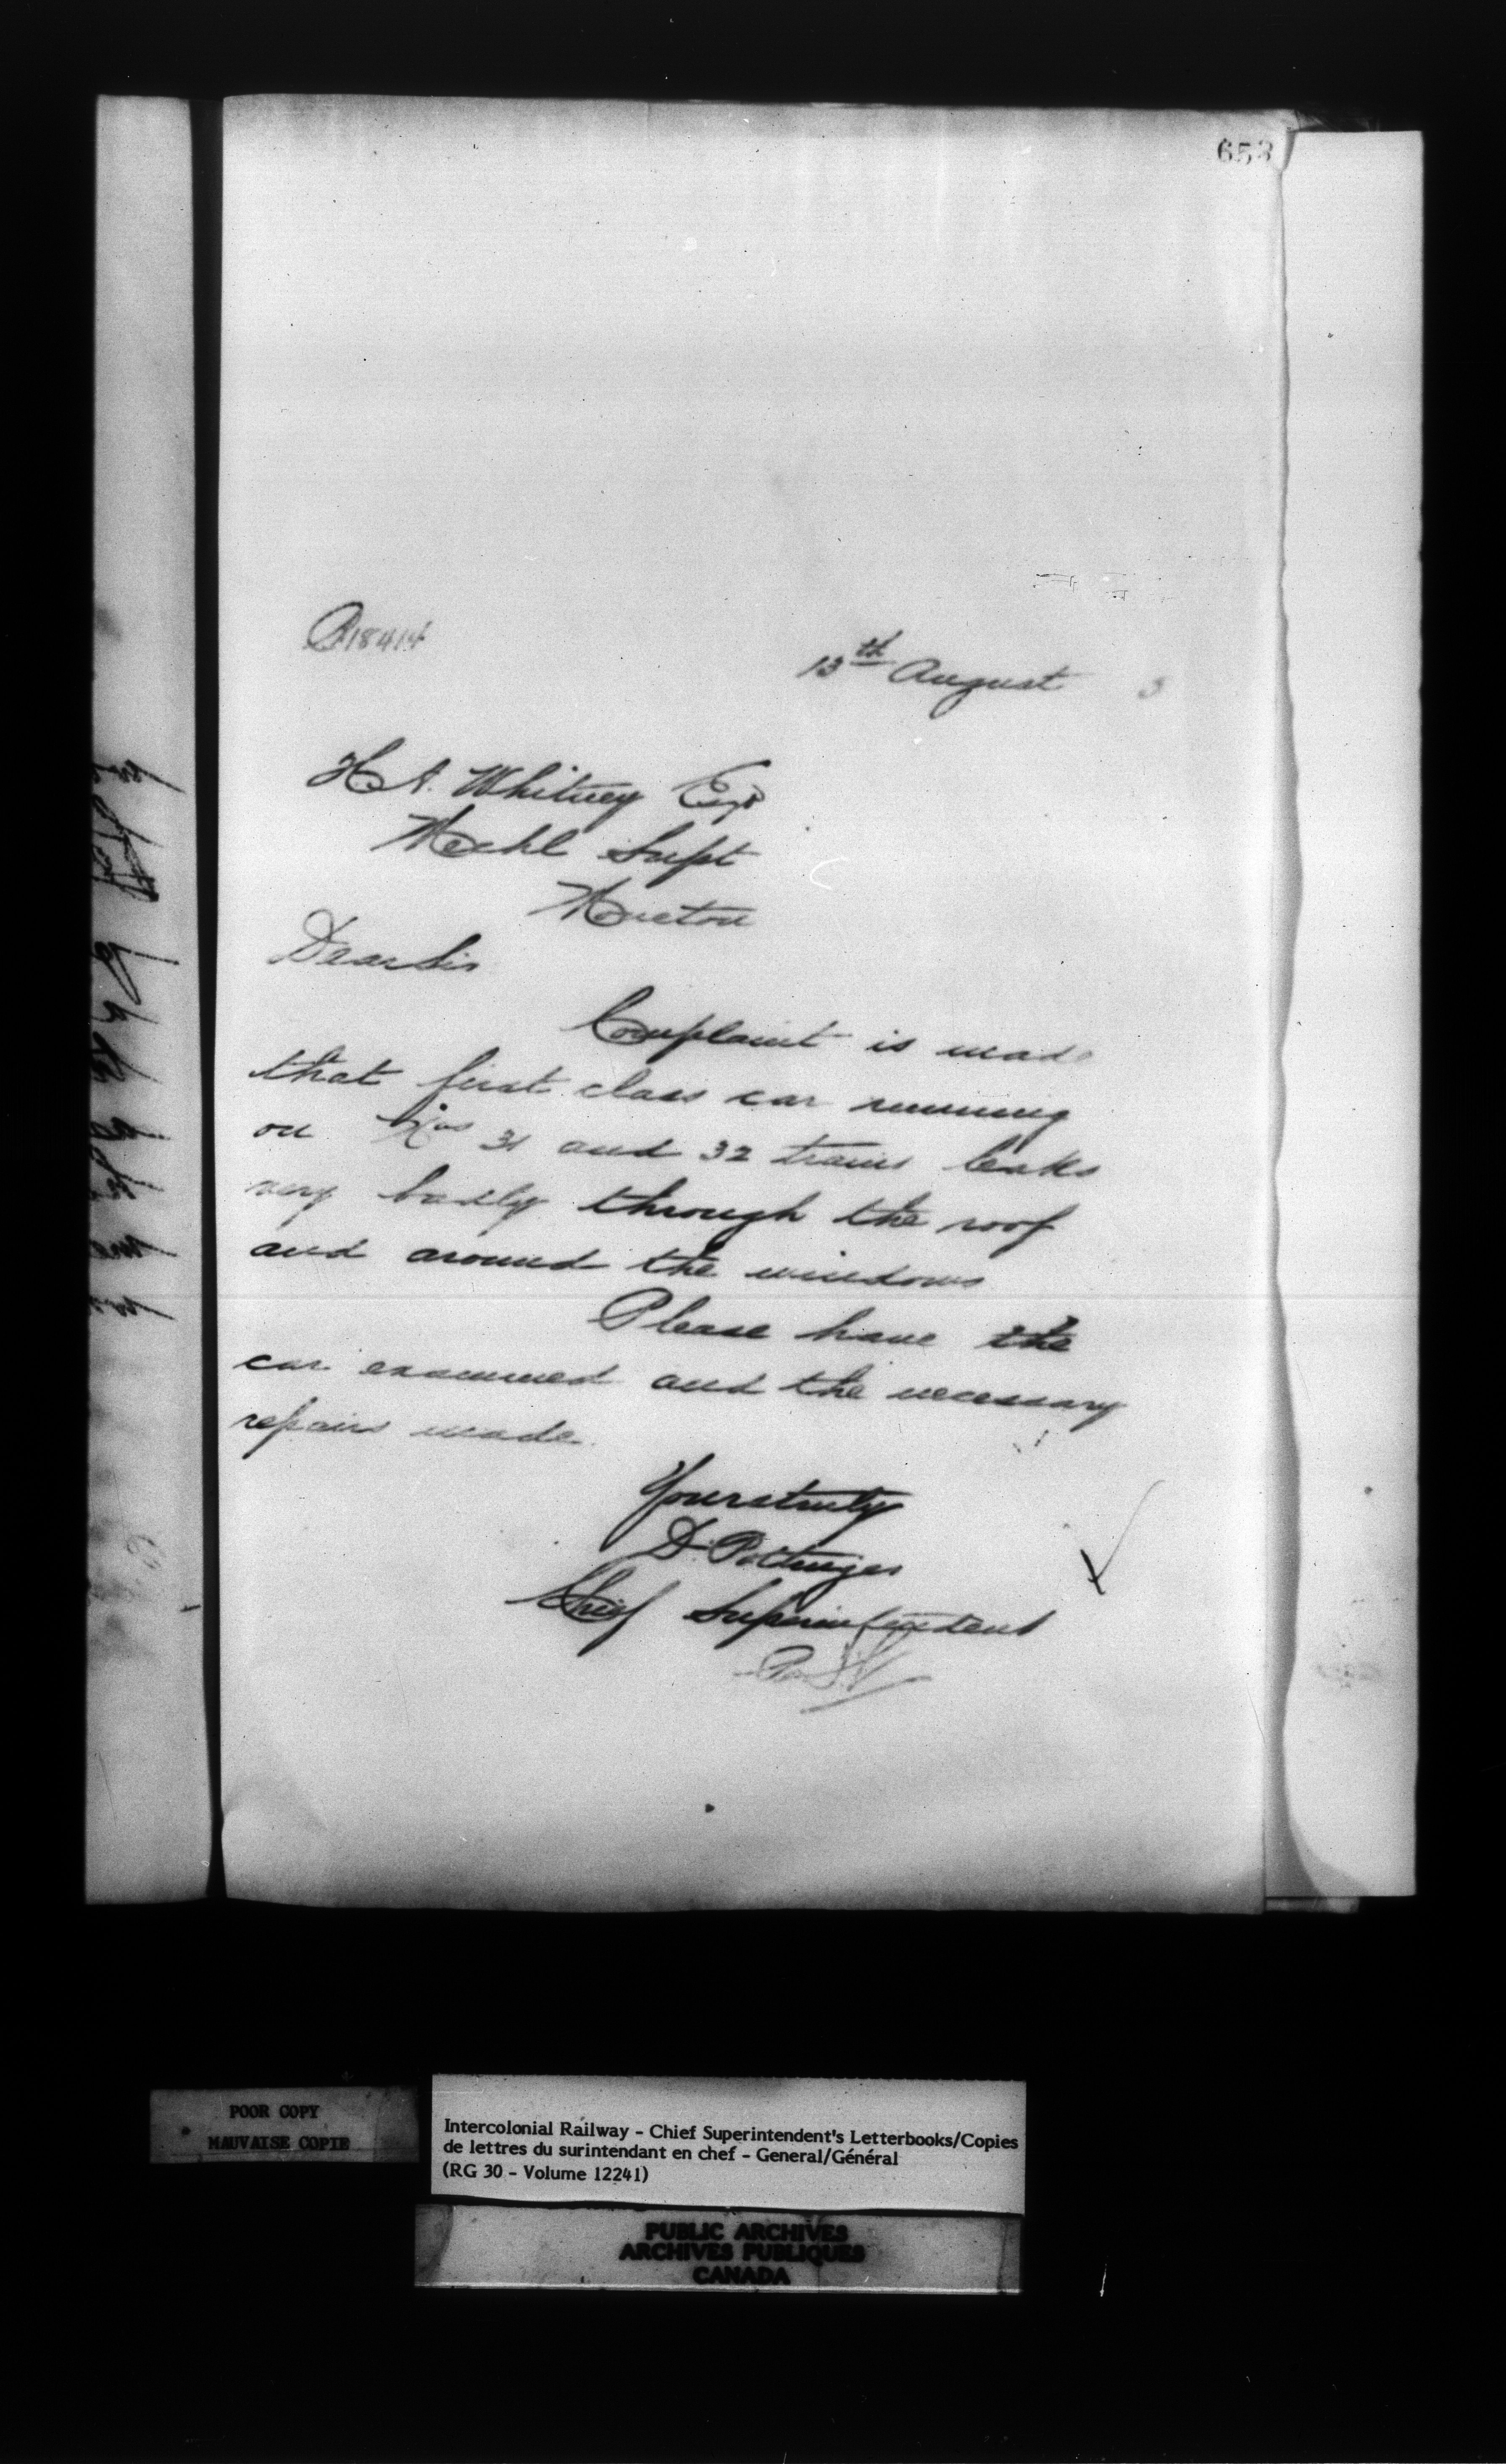 653
18414
13th August 3
H.A. Whitney Esqr
Mechl Supt
Moncton
Dear Sir
Complaint is made
that first class car running
on Nos 31 and 32 trains leaks
very badly through the roof
and around the windows
Please have the
car examined and the necessary
repairs made.
Yours truly
D. Pottinger
Chief Superintendent
Per
POOR COPY
MAUVAISE COPIE
Intercolonial Railway - Chief Superintendent's Letterbooks/Copies
de lettres du surintendant en chef - General/Général
(RG 30 - Volume 12241)
PUBLIC ARCHIVES
ARCHIVES PUBLIQUES
CANADA